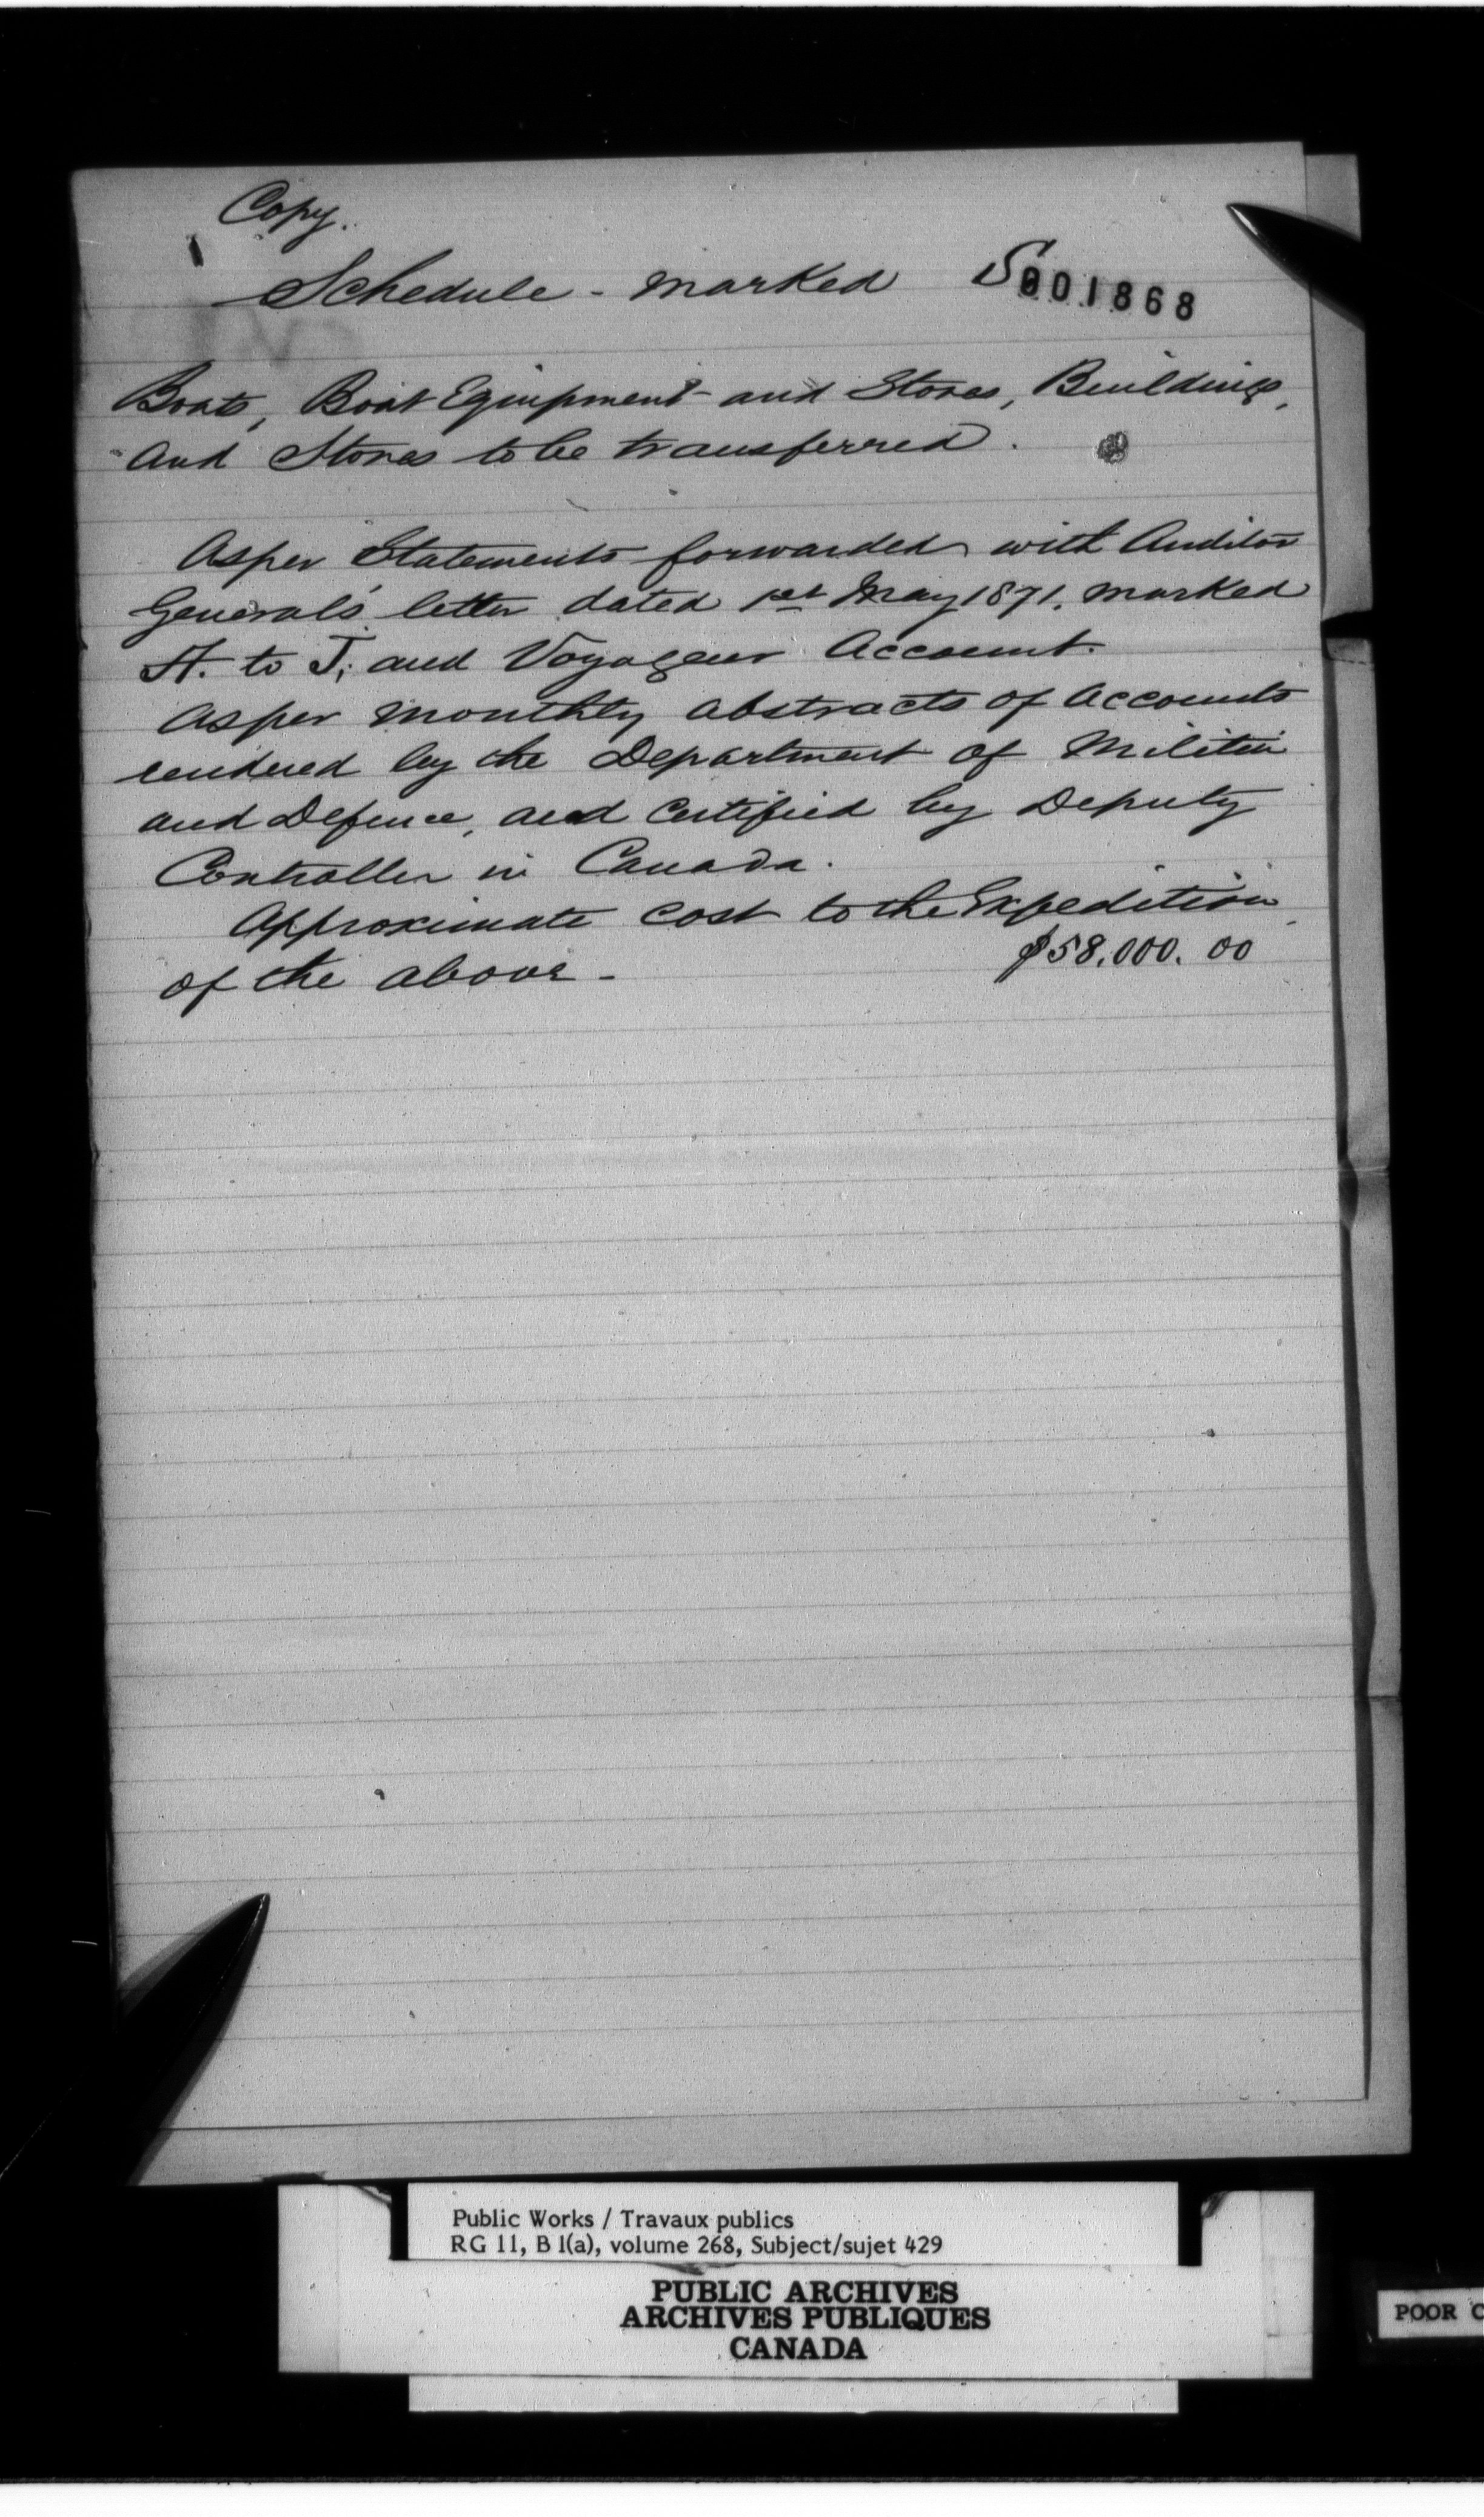 Copy.
Schedule - marked S
001868
Boats, Boat Equipment and Stores, Buildings,
and Stores to be transferred.
As per Statements forwarded with Auditor
General's letter dated 1st May 1871, marked
A. to J, and Voyageur Account.
As per monthly abstracts of Accounts
rendered by the Department of Militia
and Defence, and certified by Deputy
Controller in Canada.
Approximate cost to the Expedition
of the above - $58,000.00
Public Works / Travaux publics
RG 11, B 1(a), volume 268, Subject/sujet 429
PUBLIC ARCHIVES
ARCHIVES PUBLIQUES
CANADA
POOR C